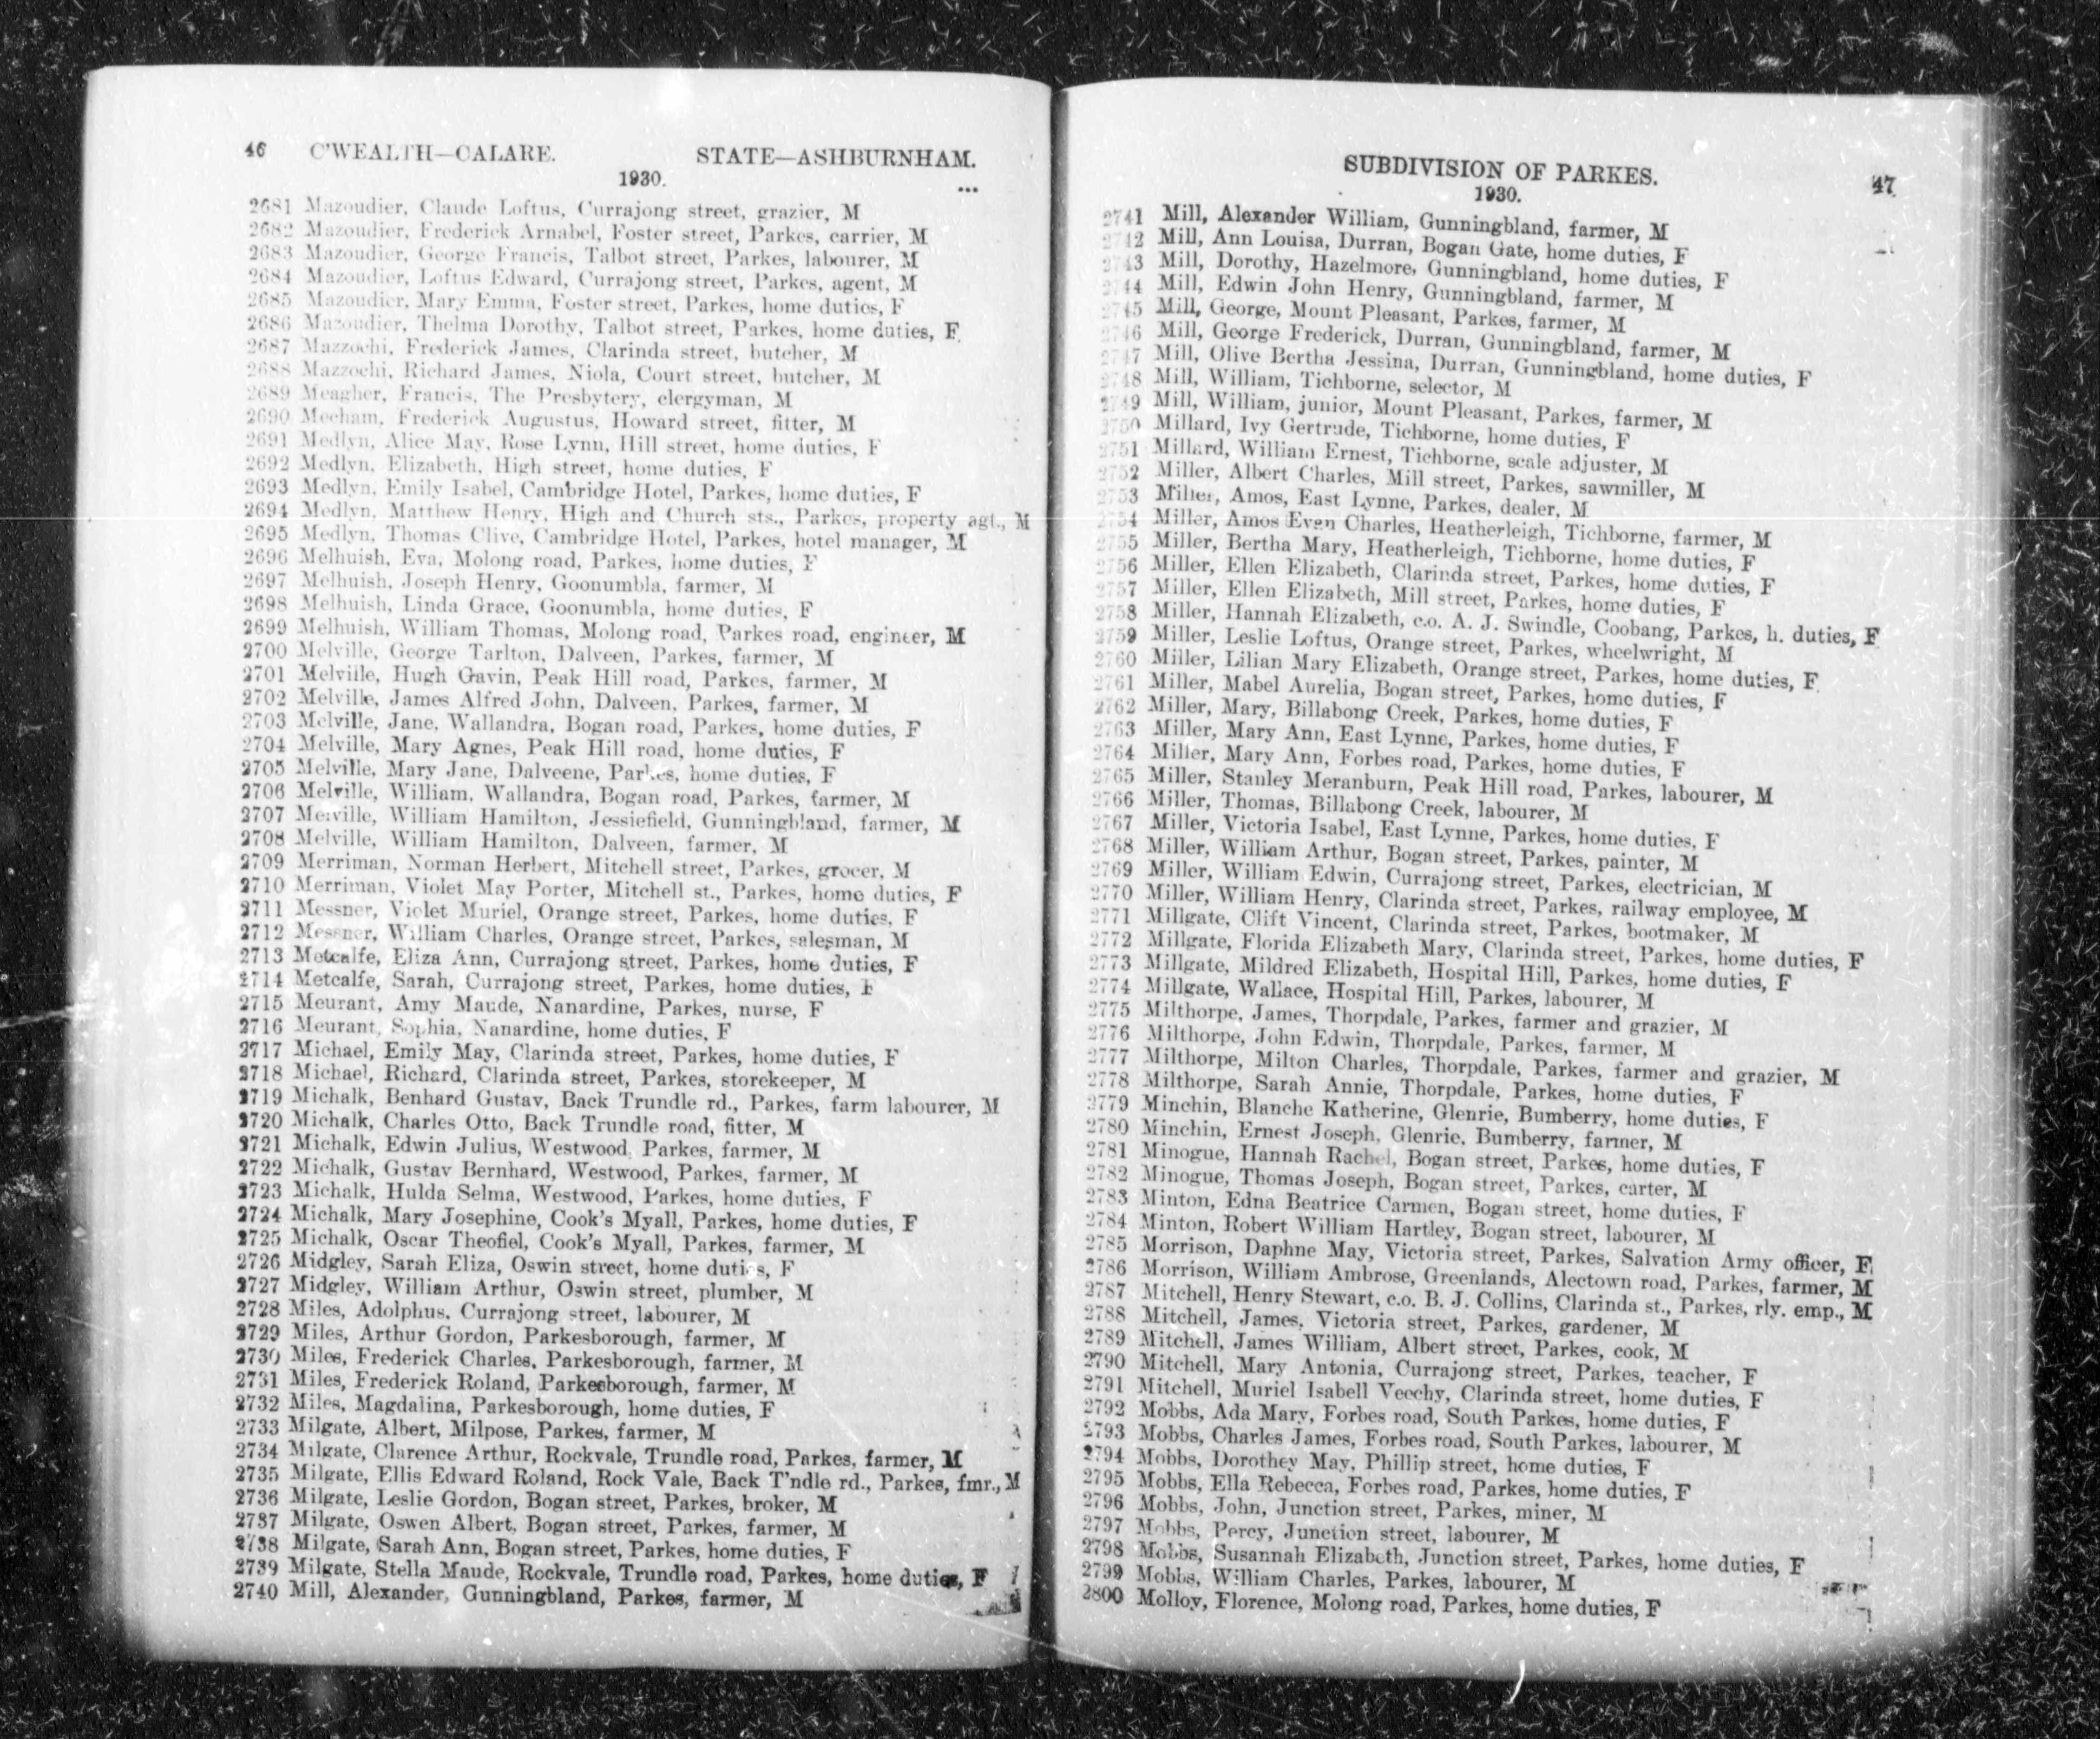 46 C'WEALTH—CALARE. STATE—ASHBURNHAM.
1930.
2681 Mazoudier, Claude Loftus, Currajong street, grazier, M
2682 Mazoudier, Frederick Arnabel, Foster street, Parkes, carrier, M
2683 Mazoudier, George Francis, Talbot street, Parkes, labourer, M
2684 Mazoudier, Loftus Edward, Currajong street, Parkes, agent, M
2685 Mazoudier, Mary Emma, Foster street, Parkes, home duties, F
2686 Mazoudier, Thelma Dorothy, Talbot street, Parkes, home duties, F
2687 Mazzochi, Frederick James, Clarinda street, butcher, M
2688 Mazzochi, Richard James, Niola, Court street, butcher, M
2689 Meagher, Francis, The Presbytery, clergyman, M
2690 Mecham, Frederick Augustus, Howard street, fitter, M
2691 Medlyn, Alice May, Rose Lynn, Hill street, home duties, F
2692 Medlyn, Elizabeth, High street, home duties, F
2693 Medlyn, Emily Isabel, Cambridge Hotel, Parkes, home duties, F
2694 Medlyn, Matthew Henry, High and Church sts., Parkes, property agt., M
2695 Medlyn, Thomas Clive, Cambridge Hotel, Parkes, hotel manager, M
2696 Melhuish, Eva, Molong road, Parkes, home duties, F
2697 Melhuish, Joseph Henry, Goonumbla, farmer, M
2698 Melhuish, Linda Grace, Goonumbla, home duties, F
2699 Melhuish, William Thomas, Molong road, Parkes road, engineer, M
2700 Melville, George Tarlton, Dalveen, Parkes, farmer, M
2701 Melville, Hugh Gavin, Peak Hill road, Parkes, farmer, M
2702 Melville, James Alfred John, Dalveen, Parkes, farmer, M
2703 Melville, Jane, Wallandra, Bogan road, Parkes, home duties, F
2704 Melville, Mary Agnes, Peak Hill road, home duties, F
2705 Melville, Mary Jane, Dalveene, Parkes, home duties, F
2706 Melville, William, Wallandra, Bogan road, Parkes, farmer, M
2707 Melville, William Hamilton, Jessiefield, Gunningbland, farmer, M
2708 Melville, William Hamilton, Dalveen, farmer, M
2709 Merriman, Norman Herbert, Mitchell street, Parkes, grocer, M
2710 Merriman, Violet May Porter, Mitchell st., Parkes, home duties, F
2711 Messner, Violet Muriel, Orange street, Parkes, home duties, F
2712 Messner, William Charles, Orange street, Parkes, salesman, M
2713 Metcalfe, Eliza Ann, Currajong street, Parkes, home duties, F
2714 Metcalfe, Sarah, Currajong street, Parkes, home duties, F
2715 Meurant, Amy Maude, Nanardine, Parkes, nurse, F
2716 Meurant, Sophia, Nanardine, home duties, F
2717 Michael, Emily May, Clarinda street, Parkes, home duties, F
2718 Michael, Richard, Clarinda street, Parkes, storekeeper, M
2719 Michalk, Benhard Gustav, Back Trundle rd., Parkes, farm labourer, M
2720 Michalk, Charles Otto, Back Trundle road, fitter, M
2721 Michalk, Edwin Julius, Westwood, Parkes, farmer, M
2722 Michalk, Gustav Bernhard, Westwood, Parkes, farmer, M
2723 Michalk, Hulda Selma, Westwood, Parkes, home duties, F
2724 Michalk, Mary Josephine, Cook's Myall, Parkes, home duties, F
2725 Michalk, Oscar Theofiel, Cook's Myall, Parkes, farmer, M
2726 Midgley, Sarah Eliza, Oswin street, home duties, F
2727 Midgley, William Arthur, Oswin street, plumber, M
2728 Miles, Adolphus, Currajong street, labourer, M
2729 Miles, Arthur Gordon, Parkesborough, farmer, M
2730 Miles, Frederick Charles, Parkesborough, farmer, M
2731 Miles, Frederick Roland, Parkesborough, farmer, M
2732 Miles, Magdalina, Parkesborough, home duties, F
2733 Milgate, Albert, Milpose, Parkes, farmer, M
2734 Milgate, Clarence Arthur, Rockvale, Trundle road, Parkes, farmer, M
2735 Milgate, Ellis Edward Roland, Rock Vale, Back T'ndle rd., Parkes, fmr., M
2736 Milgate, Leslie Gordon, Bogan street, Parkes, broker, M
2737 Milgate, Oswen Albert, Bogan street, Parkes, farmer, M
2738 Milgate, Sarah Ann, Bogan street, Parkes, home duties, F
2739 Milgate, Stella Maude, Rockvale, Trundle road, Parkes, home duties, F
2740 Mill, Alexander, Gunningbland, Parkes, farmer, M
SUBDIVISION OF PARKES. 47
1930.
2741 Mill, Alexander William, Gunningbland, farmer, M
2742 Mill, Ann Louisa, Durran, Bogan Gate, home duties, F
2743 Mill, Dorothy, Hazelmore, Gunningbland, home duties, F
2744 Mill, Edwin John Henry, Gunningbland, farmer, M
2745 Mill, George, Mount Pleasant, Parkes, farmer, M
2746 Mill, George Frederick, Durran, Gunningbland, farmer, M
2747 Mill, Olive Bertha Jessina, Durran, Gunningbland, home duties, F
2748 Mill, William, Tichborne, selector, M
2749 Mill, William, junior, Mount Pleasant, Parkes, farmer, M
2750 Millard, Ivy Gertrude, Tichborne, home duties, F
2751 Millard, William Ernest, Tichborne, scale adjuster, M
2752 Miller, Albert Charles, Mill street, Parkes, sawmiller, M
2753 Miller, Amos, East Lynne, Parkes, dealer, M
2754 Miller, Amos Evan Charles, Heatherleigh, Tichborne, farmer, M
2755 Miller, Bertha Mary, Heatherleigh, Tichborne, home duties, F
2756 Miller, Ellen Elizabeth, Clarinda street, Parkes, home duties, F
2757 Miller, Ellen Elizabeth, Mill street, Parkes, home duties, F
2758 Miller, Hannah Elizabeth, c.o. A. J. Swindle, Coobang, Parkes, h. duties, F
2759 Miller, Leslie Loftus, Orange street, Parkes, wheelwright, M
2760 Miller, Lilian Mary Elizabeth, Orange street, Parkes, home duties, F
2761 Miller, Mabel Aurelia, Bogan street, Parkes, home duties, F
2762 Miller, Mary, Billabong Creek, Parkes, home duties, F
2763 Miller, Mary Ann, East Lynne, Parkes, home duties, F
2764 Miller, Mary Ann, Forbes road, Parkes, home duties, F
2765 Miller, Stanley Meranburn, Peak Hill road, Parkes, labourer, M
2766 Miller, Thomas, Billabong Creek, labourer, M
2767 Miller, Victoria Isabel, East Lynne, Parkes, home duties, F
2768 Miller, William Arthur, Bogan street, Parkes, painter, M
2769 Miller, William Edwin, Currajong street, Parkes, electrician, M
2770 Miller, William Henry, Clarinda street, Parkes, railway employee, M
2771 Millgate, Clift Vincent, Clarinda street, Parkes, bootmaker, M
2772 Millgate, Florida Elizabeth Mary, Clarinda street, Parkes, home duties, F
2773 Millgate, Mildred Elizabeth, Hospital Hill, Parkes, home duties, F
2774 Millgate, Wallace, Hospital Hill, Parkes, labourer, M
2775 Milthorpe, James, Thorpdale, Parkes, farmer and grazier, M
2776 Milthorpe, John Edwin, Thorpdale, Parkes, farmer, M
2777 Milthorpe, Milton Charles, Thorpdale, Parkes, farmer and grazier, M
2778 Milthorpe, Sarah Annie, Thorpdale, Parkes, home duties, F
2779 Minchin, Blanche Katherine, Glenrie, Bumberry, home duties, F
2780 Minchin, Ernest Joseph, Glenrie, Bumberry, farmer, M
2781 Minogue, Hannah Rachel, Bogan street, Parkes, home duties, F
2782 Minogue, Thomas Joseph, Bogan street, Parkes, carter, M
2783 Minton, Edna Beatrice Carmen, Bogan street, home duties, F
2784 Minton, Robert William Hartley, Bogan street, labourer, M
2785 Morrison, Daphne May, Victoria street, Parkes, Salvation Army officer, F
2786 Morrison, William Ambrose, Greenlands, Alectown road, Parkes, farmer, M
2787 Mitchell, Henry Stewart, c.o. B. J. Collins, Clarinda st., Parkes, rly. emp., M
2788 Mitchell, James, Victoria street, Parkes, gardener, M
2789 Mitchell, James William, Albert street, Parkes, cook, M
2790 Mitchell, Mary Antonia, Currajong street, Parkes, teacher, F
2791 Mitchell, Muriel Isabell Veechy, Clarinda street, home duties, F
2792 Mobbs, Ada Mary, Forbes road, South Parkes, home duties, F
2793 Mobbs, Charles James, Forbes road, South Parkes, labourer, M
2794 Mobbs, Dorothey May, Phillip street, home duties, F
2795 Mobbs, Ella Rebecca, Forbes road, Parkes, home duties, F
2796 Mobbs, John, Junction street, Parkes, miner, M
2797 Mobbs, Percy, Junction street, labourer, M
2798 Mobbs, Susannah Elizabeth, Junction street, Parkes, home duties, F
2799 Mobbs, William Charles, Parkes, labourer, M
2800 Molloy, Florence, Molong road, Parkes, home duties, F